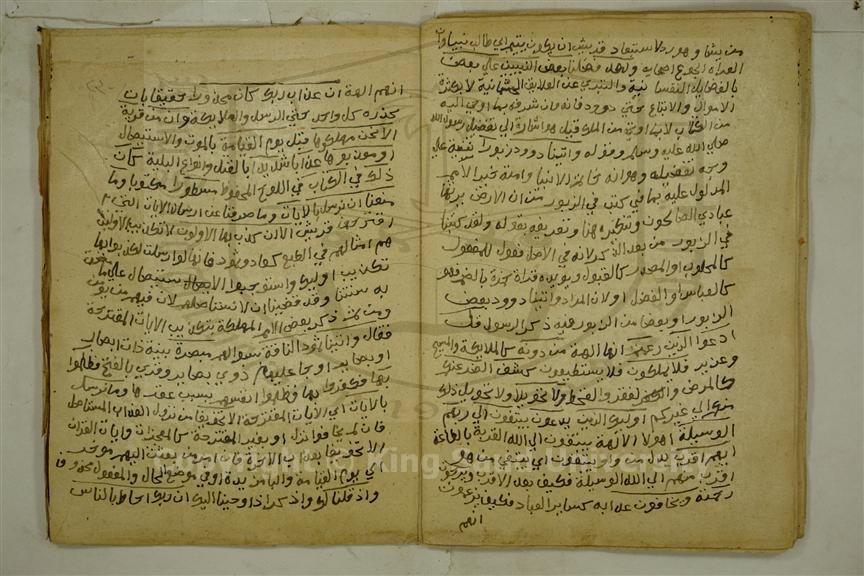 من يشاء وهو رد لاستبعاد قريش ان يكون يتيم ابي طالب نبيا وان
العراة الجوع اصحابه ولقد فضلنا بعض النبيين علي بعض
بالفضائل النفسانية والتبري عن العلايق الجسمانية لا بكثرة
الاموال والاتباع حتي داود فان شرفه بما اوحي اليه
من الكتاب لا بما اوتي من الملك قيل هو اشارة الي تفضيل رسول الله
صلي الله عليه وسلم وقوله واتينا داوود زبورا تنبيه علي
وجه تفضيله وهو انه خاتم الانبيا وامته خير الامم
المدلول عليه بما في كتب في الزبور من ان الارض يرثها
عبادي الصالحون وتنكيره هنا وتعريفه بقوله ولقد كتبنا
في الزبور من بعد الذكر لانه في الاصل فعول للمفعول
كالحلوب او المصدر كالقبول ويؤيده قراة حمزة بالضم فهو
كالعباس او الفضل او لان المراد واتينا داوود بعض
الزبور او بعضا من الزبور فيه ذكر الرسول قل
ادعوا الذين زعمتم انها الهة من دونه كالملايكة والمسيح
وعزير فلا يملكون فلا يستطيعون كشف الضر عنكم
كالمرض والفقر والقحط ولا تحويلا ولا تحويل ذلك
منكم الي غيركم اوليك الذين يدعون يبتغون الي ربهم
الوسيلة هولا الالهة يبتغون الي الله القربة بالطاعة
ايهم اقرب بدل من واو يبتغون اي يبتغي من هو
اقرب منهم الي الله الوسيلة فكيف بغير الاقرب ويرجون
رحمته ويخافون عذابه كساير العباد فكيف يزعمون
انهم
انهم الهة ان عذاب ربك كان محذورا حقيقا بان
يحذره كل واحد حتي الرسل والملايكة وان من قرية
الا نحن مهلكوها قبل يوم القيامة بالموت والاستيصال
او معذبوها عذابا شديدا بالقتل وانواع البلية كان
ذلك في الكتاب في اللوح المحفوظ مسطورا مكتوبا وما
منعنا ان نرسل بالايات وما صرفنا عن ارسال الايات التي
اقترحها قريش الا ان كذب بها الاولون الا تكذيب الاولين
هم امثالهم في الطبع كعاد وثمود فانها لو ارسلت لكذبوا بها
تكذيب اوليك واستوجبوا الاستيصال علي ما
به سنتنا وقد قضينا ان لا نستاصلهم لان فيهم من يومن
ذكر بعض الامم المهلكة بتكذيب الايات المقترحة
فقال واتينا ثمود الناقة بسوالهم مبصرة بينة ذات ابصار
او بصاير او جاعلتهم ذوي بصاير وقري بالفتح فظلموا
بها فكفروا بها فظلموا انفسهم بسبب عقرها وما نرسل
بالايات اي الايات المقترحة الا تخويفا من نزول العذاب المستاصل
فان لم يخافوا نزل او بغير المقترحة كالمعجزات وايات القران
الا تخويفا بعذاب الاخرة فان امر من بعثت اليهم موخر
الي يوم القيامة والبا مزيدة او في موضع الحال والمفعول محذوف
واذ قلنا لك واذكر اذ اوحينا اليك ان ربك احاط بالناس